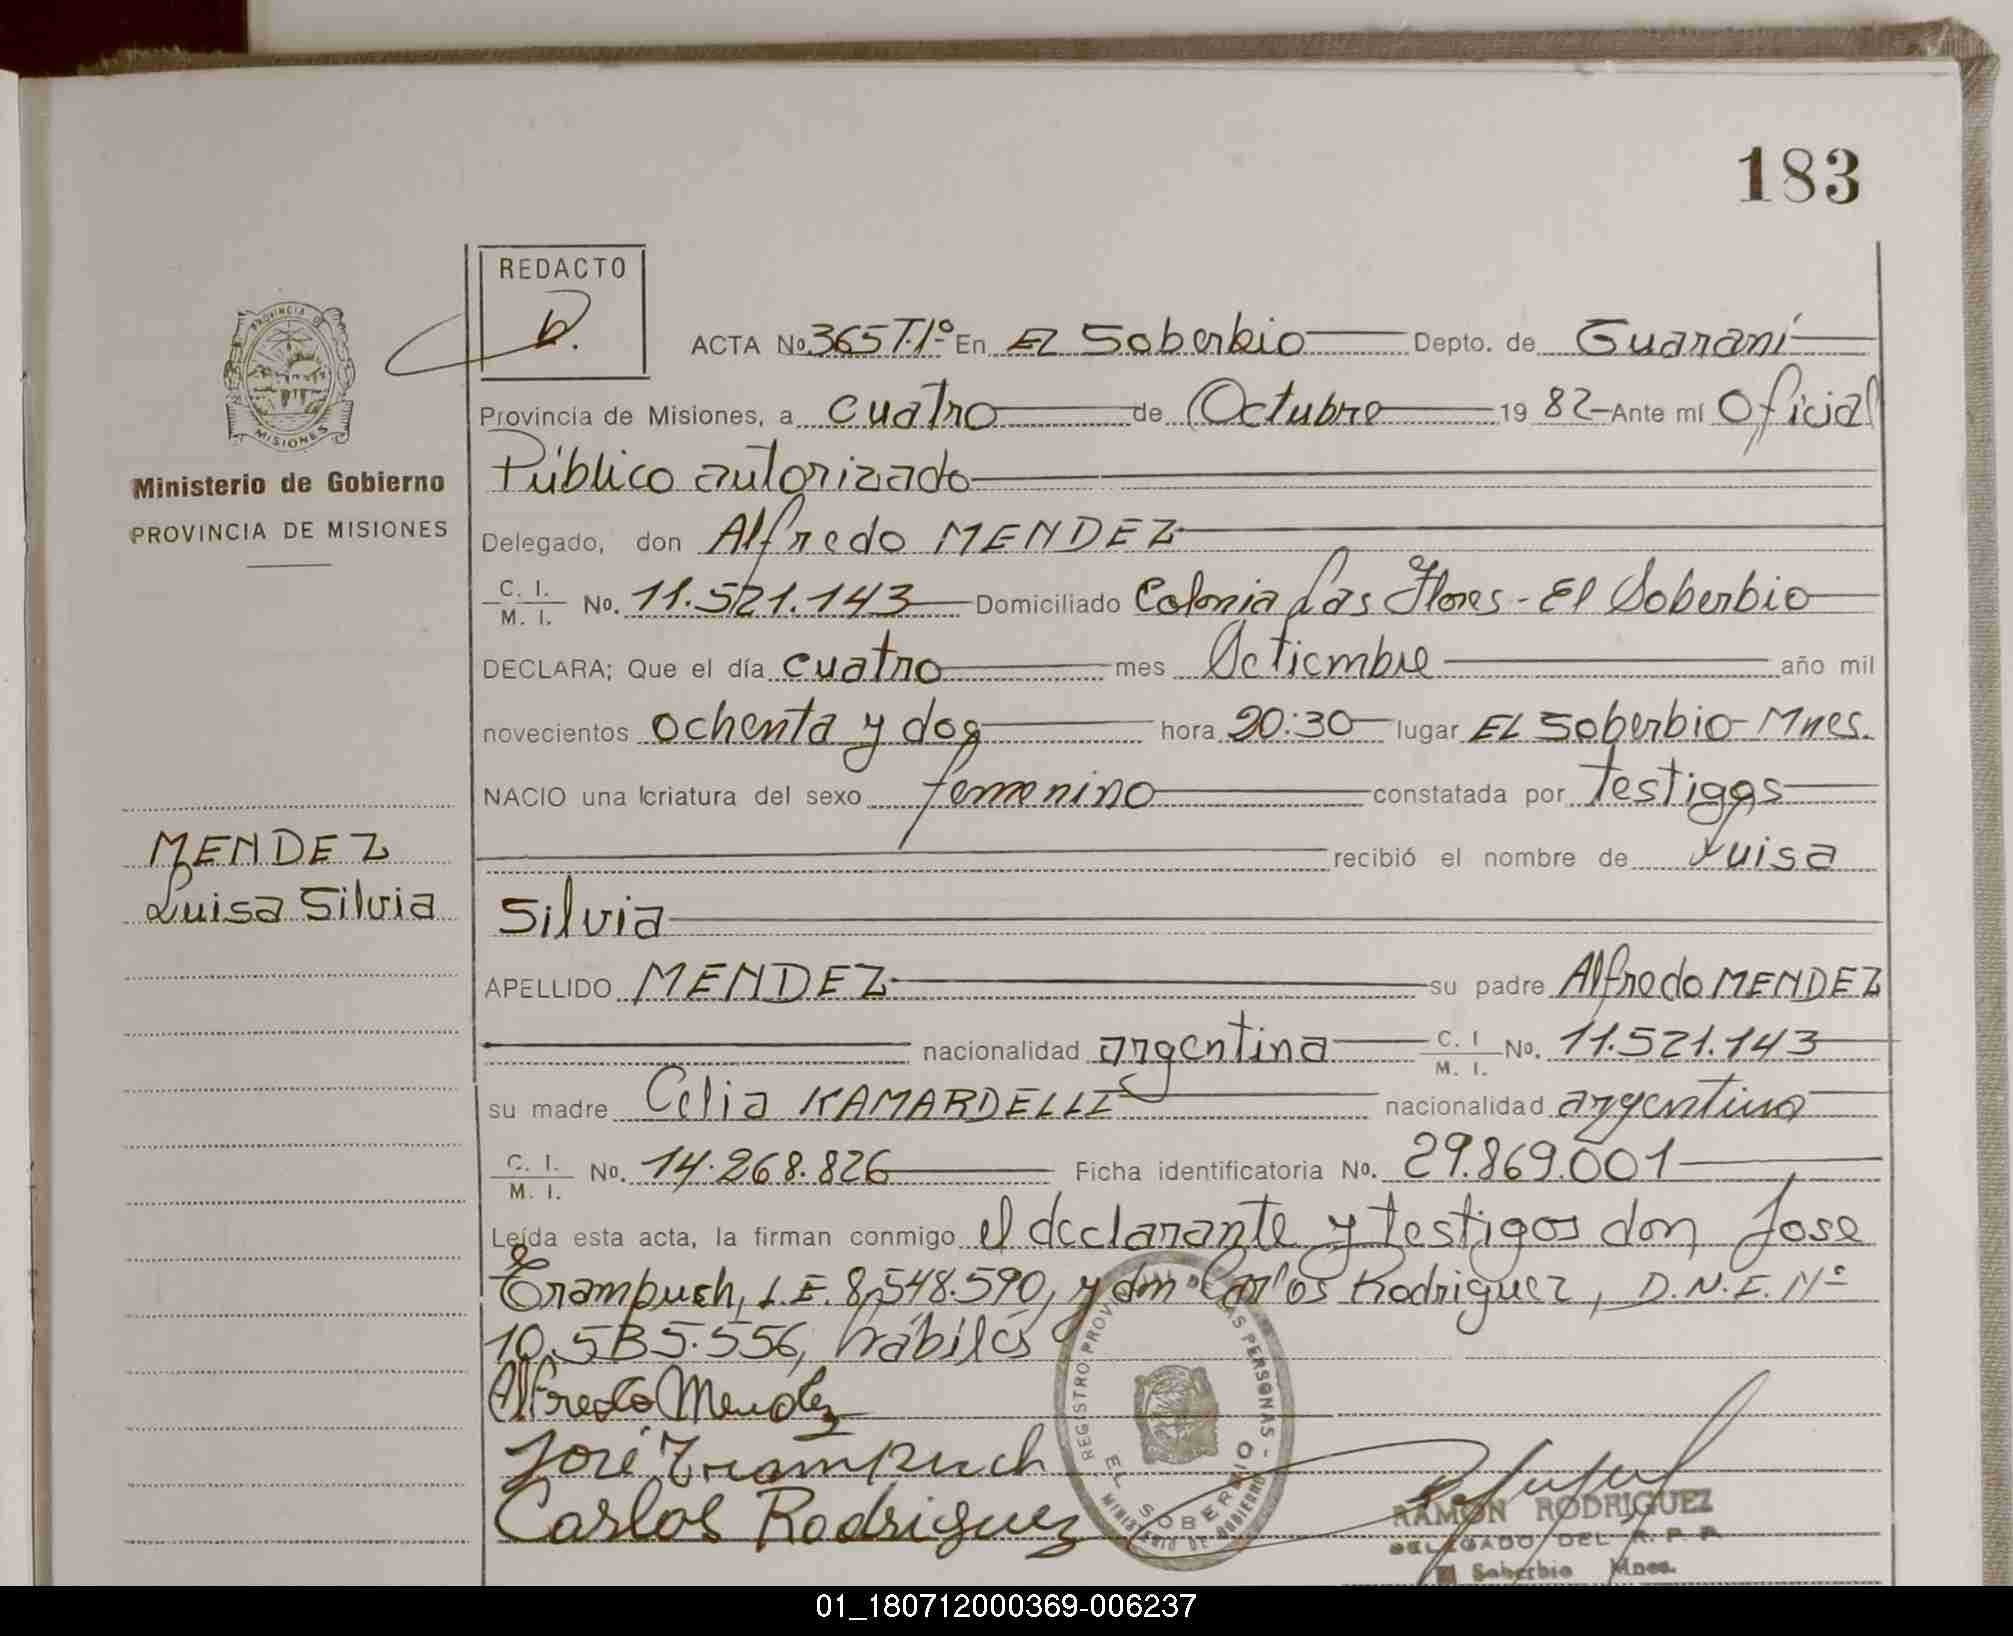 183
REDACTO
D.
PROVINCIA DE
MISIONES
Ministerio de Gobierno
PROVINCIA DE MISIONES
ACTA No. 365 T.1º En El Soberbio Depto. de Guaraní
Provincia de Misiones, a cuatro de Octubre 1982 Ante mí Oficial
Público autorizado
Delegado, don Alfredo MENDEZ
C. I.
M. I. No. 11.521.143 Domiciliado Colonia Las Flores - El Soberbio
DECLARA; Que el día cuatro mes Setiembre año mil
novecientos ochenta y dos hora 20:30 lugar EL Soberbio - Mnes.
NACIO una criatura del sexo femenino constatada por testigos
recibió el nombre de Luisa
Silvia
MENDEZ
Luisa Silvia
APELLIDO MENDEZ su padre Alfredo MENDEZ
nacionalidad argentina C. I. M. I. No. 11.521.143
su madre Celia KAMARDELLI nacionalidad argentina
C. I.
M. I. No. 14.268.826 Ficha identificatoria No. 29.869.001
Leída esta acta, la firman conmigo el declarante y testigos don Jose
Trampuch, L.E. 8.548.590, y don Carlos Rodriguez, D.N.I. Nº
10.5B5.556, hábiles
Alfredo Mendez
José Trampuch
Carlos Rodriguez
REGISTRO PROV. DE LAS PERSONAS - EL SOBERBIO
MINISTERIO DE GOBIERNO
RAMON RODRIGUEZ
DELEGADO DEL R. P. P.
El Soberbio Mnes.
01_180712000369-006237